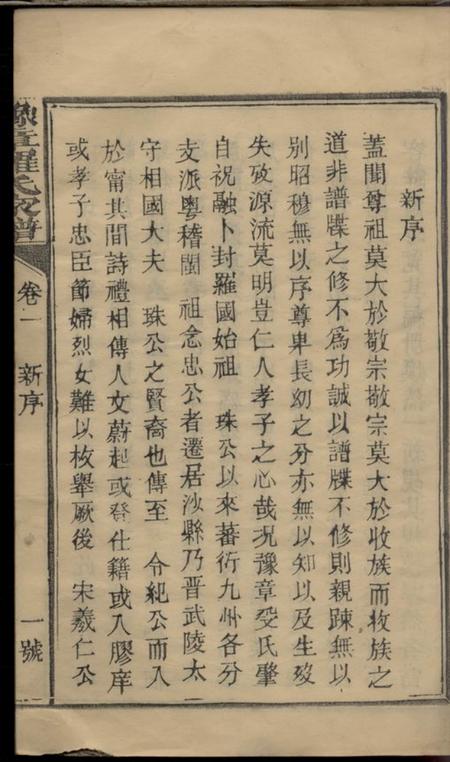 新序
蓋聞尊祖莫大於敬宗敬宗莫大於收族而收族之
道非譜牒之修不爲功誠以譜牒不修則親踈無以
別昭穆無以序尊卑長幼之分亦無以知以及生歿
失攷源流莫明豈仁人孝子之心哉况豫章受氏肇
自祝融卜封羅國始祖 珠公以來蕃衍九州各分
支派粵稽閩 祖念忠公者遷居沙縣乃晋武陵太
守相國大夫 珠公之賢裔也傳至 令紀公而入
於甯其間詩禮相傳人文蔚起或登仕籍或入膠庠
或孝子忠臣節婦烈女難以枚舉厥後 宋羲仁公
豫章羅氏家譜
卷一 新序 一號